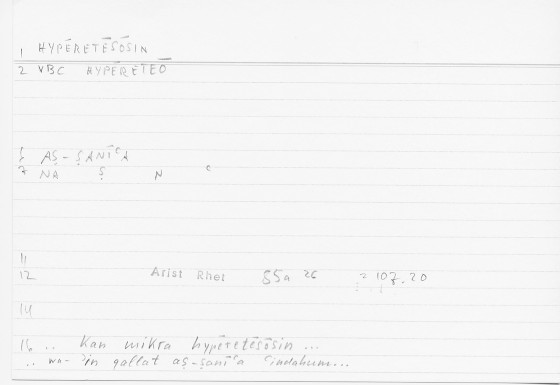 1 HYPĒRETĒSŌSIN
2 VBC HYPĒRETEŌ
6 AṢ-ṢANĪʿA
7 NA Ṣ N ʿ
11
12 Arist Rhet 85a 26 = 107.20
14
15 .. kan mikra hypēretēsōsin ...
.. wa-ʾin qallat aṣ-ṣanīʿa ʿindahum...